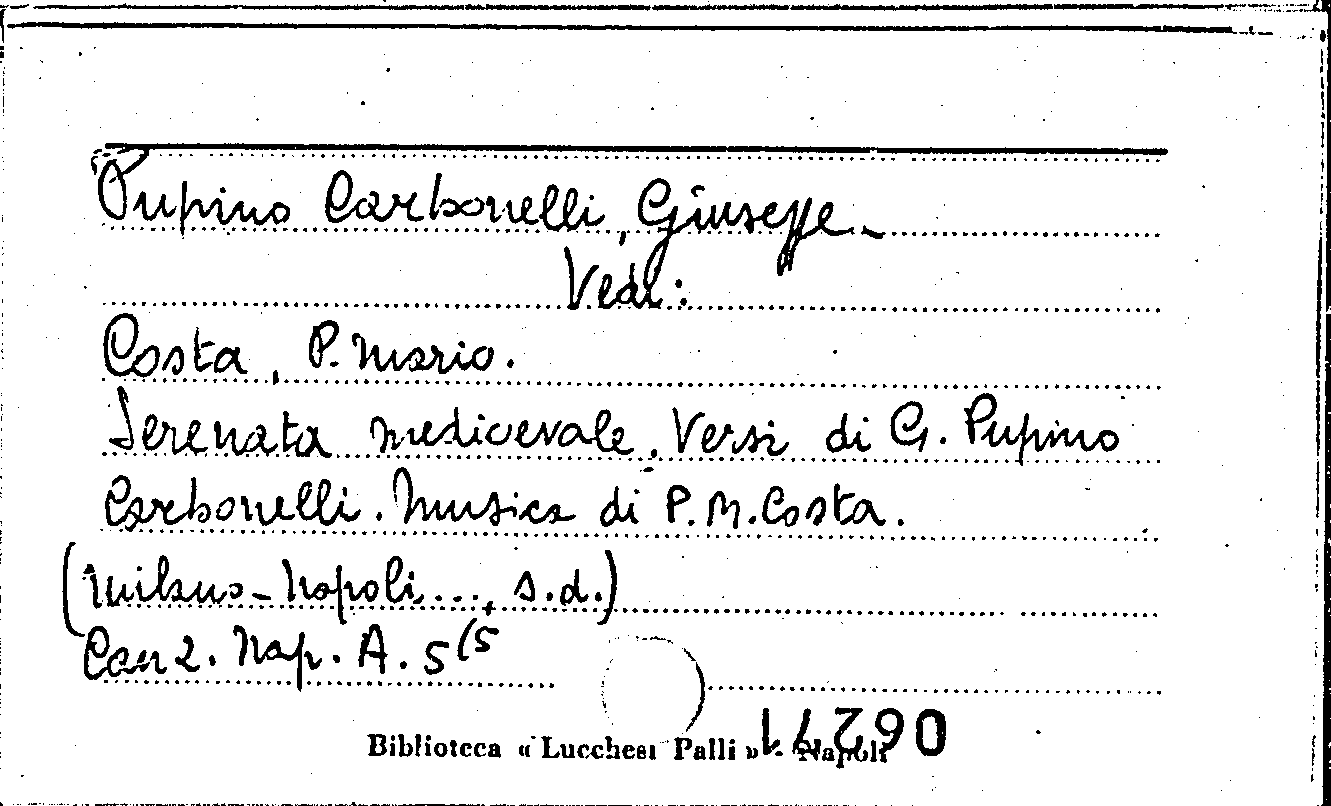 Pupino Carbonelli, Giuseppe.
Vedi:
Costa, P. Mario.
Serenata medioevale. Versi di G. Pupino
Carbonelli. Musica di P.M. Costa.
(Milano-Napoli..., s.d.)
Canz. Nap. A. 5(5
Biblioteca « Lucchesi Palli » - Napoli